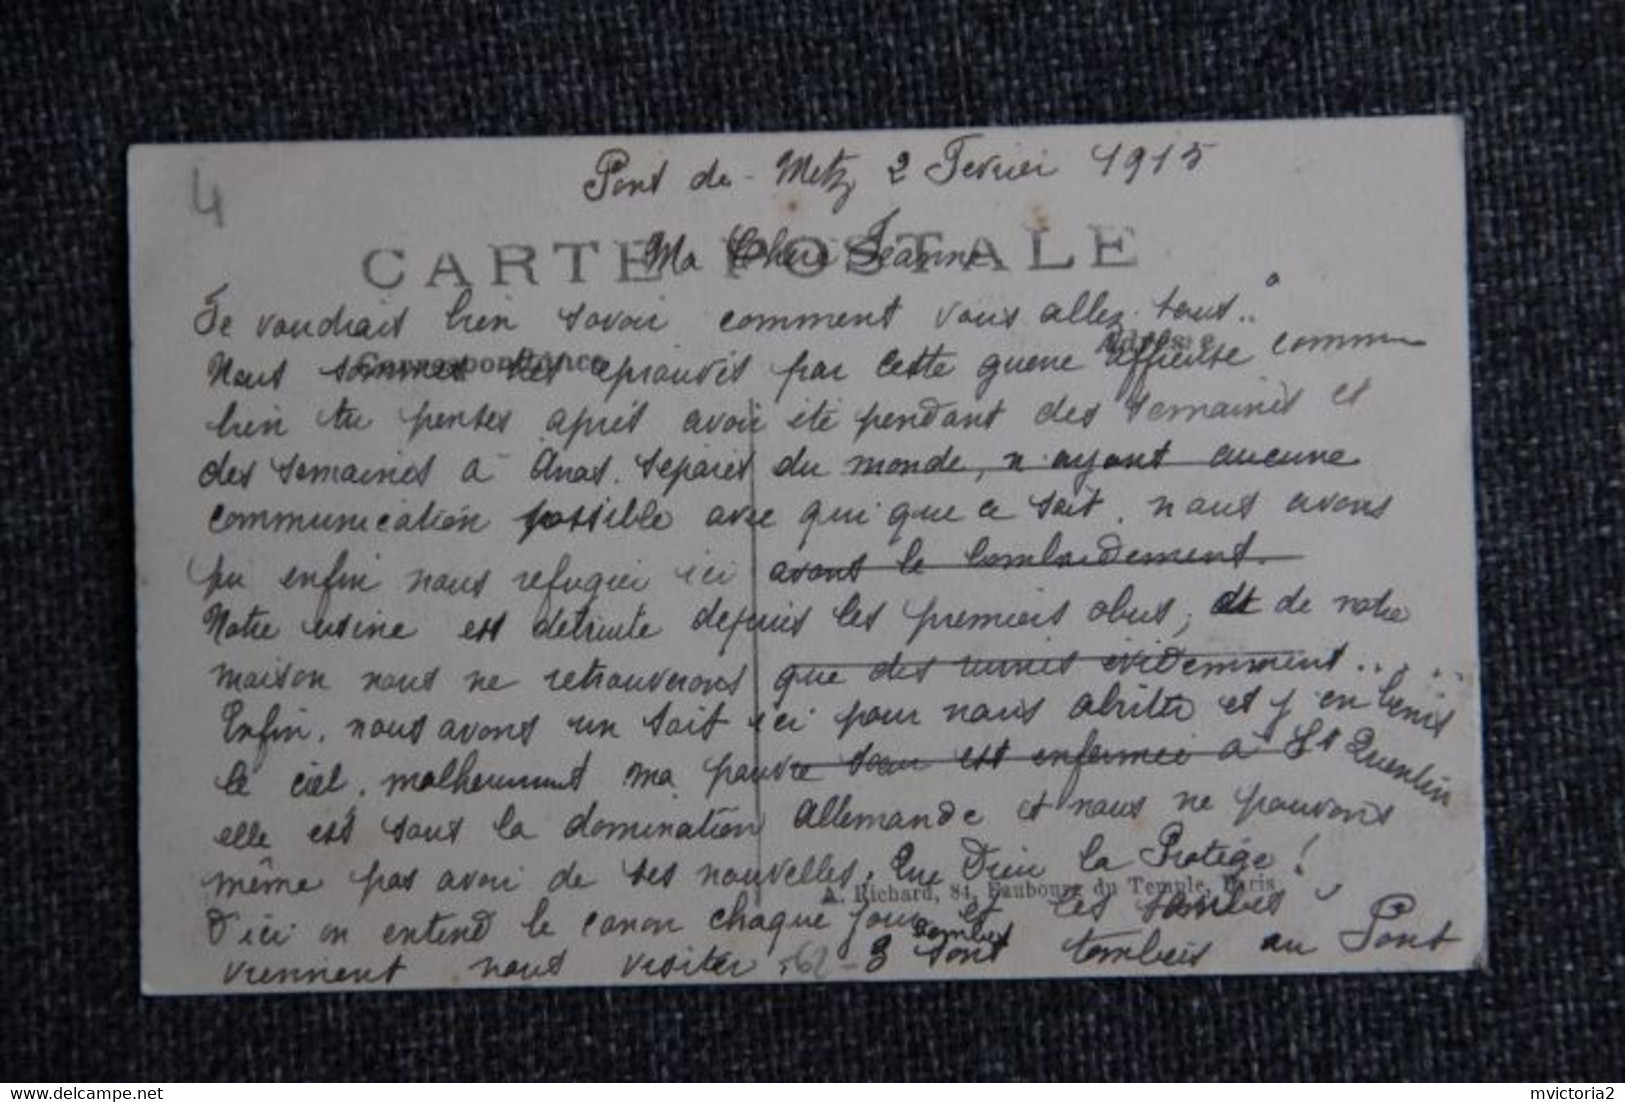 4
Pont de - Metz 2 Fevrier 1915
CARTE POSTALE
Ma Chere Jeanne
Je voudrais bien savoir comment vous allez tous..
Correspondance
Adresse
Nous sommes tres eprouvés par cette guerre affreuse comme
bien tu penses après avoir été pendant des semaines et
des semaines à Arras. séparés du monde, n'ayant aucune
communication possible avec qui que ce soit. nous avons
pu enfin nous refugier ici avant le bombardement.
Notre usine est détruite depuis les premiers obus, et de notre
maison nous ne retrouverons que des ruines évidemment.....
Enfin, nous avons un toit ici pour nous abriter et j'en bénis
le ciel. malheureusement ma pauvre soeur est enfermée à St Quentin
elle est sous la domination Allemande et nous ne pouvons
même pas avoir de ses nouvelles. Que Dieu la Protège!
A. Richard, 84, Faubourg du Temple, Paris
D'ici on entend le canon chaque jour et les
viennent nous visiter 3 bombes sont tombées au Pont
mvictoria2